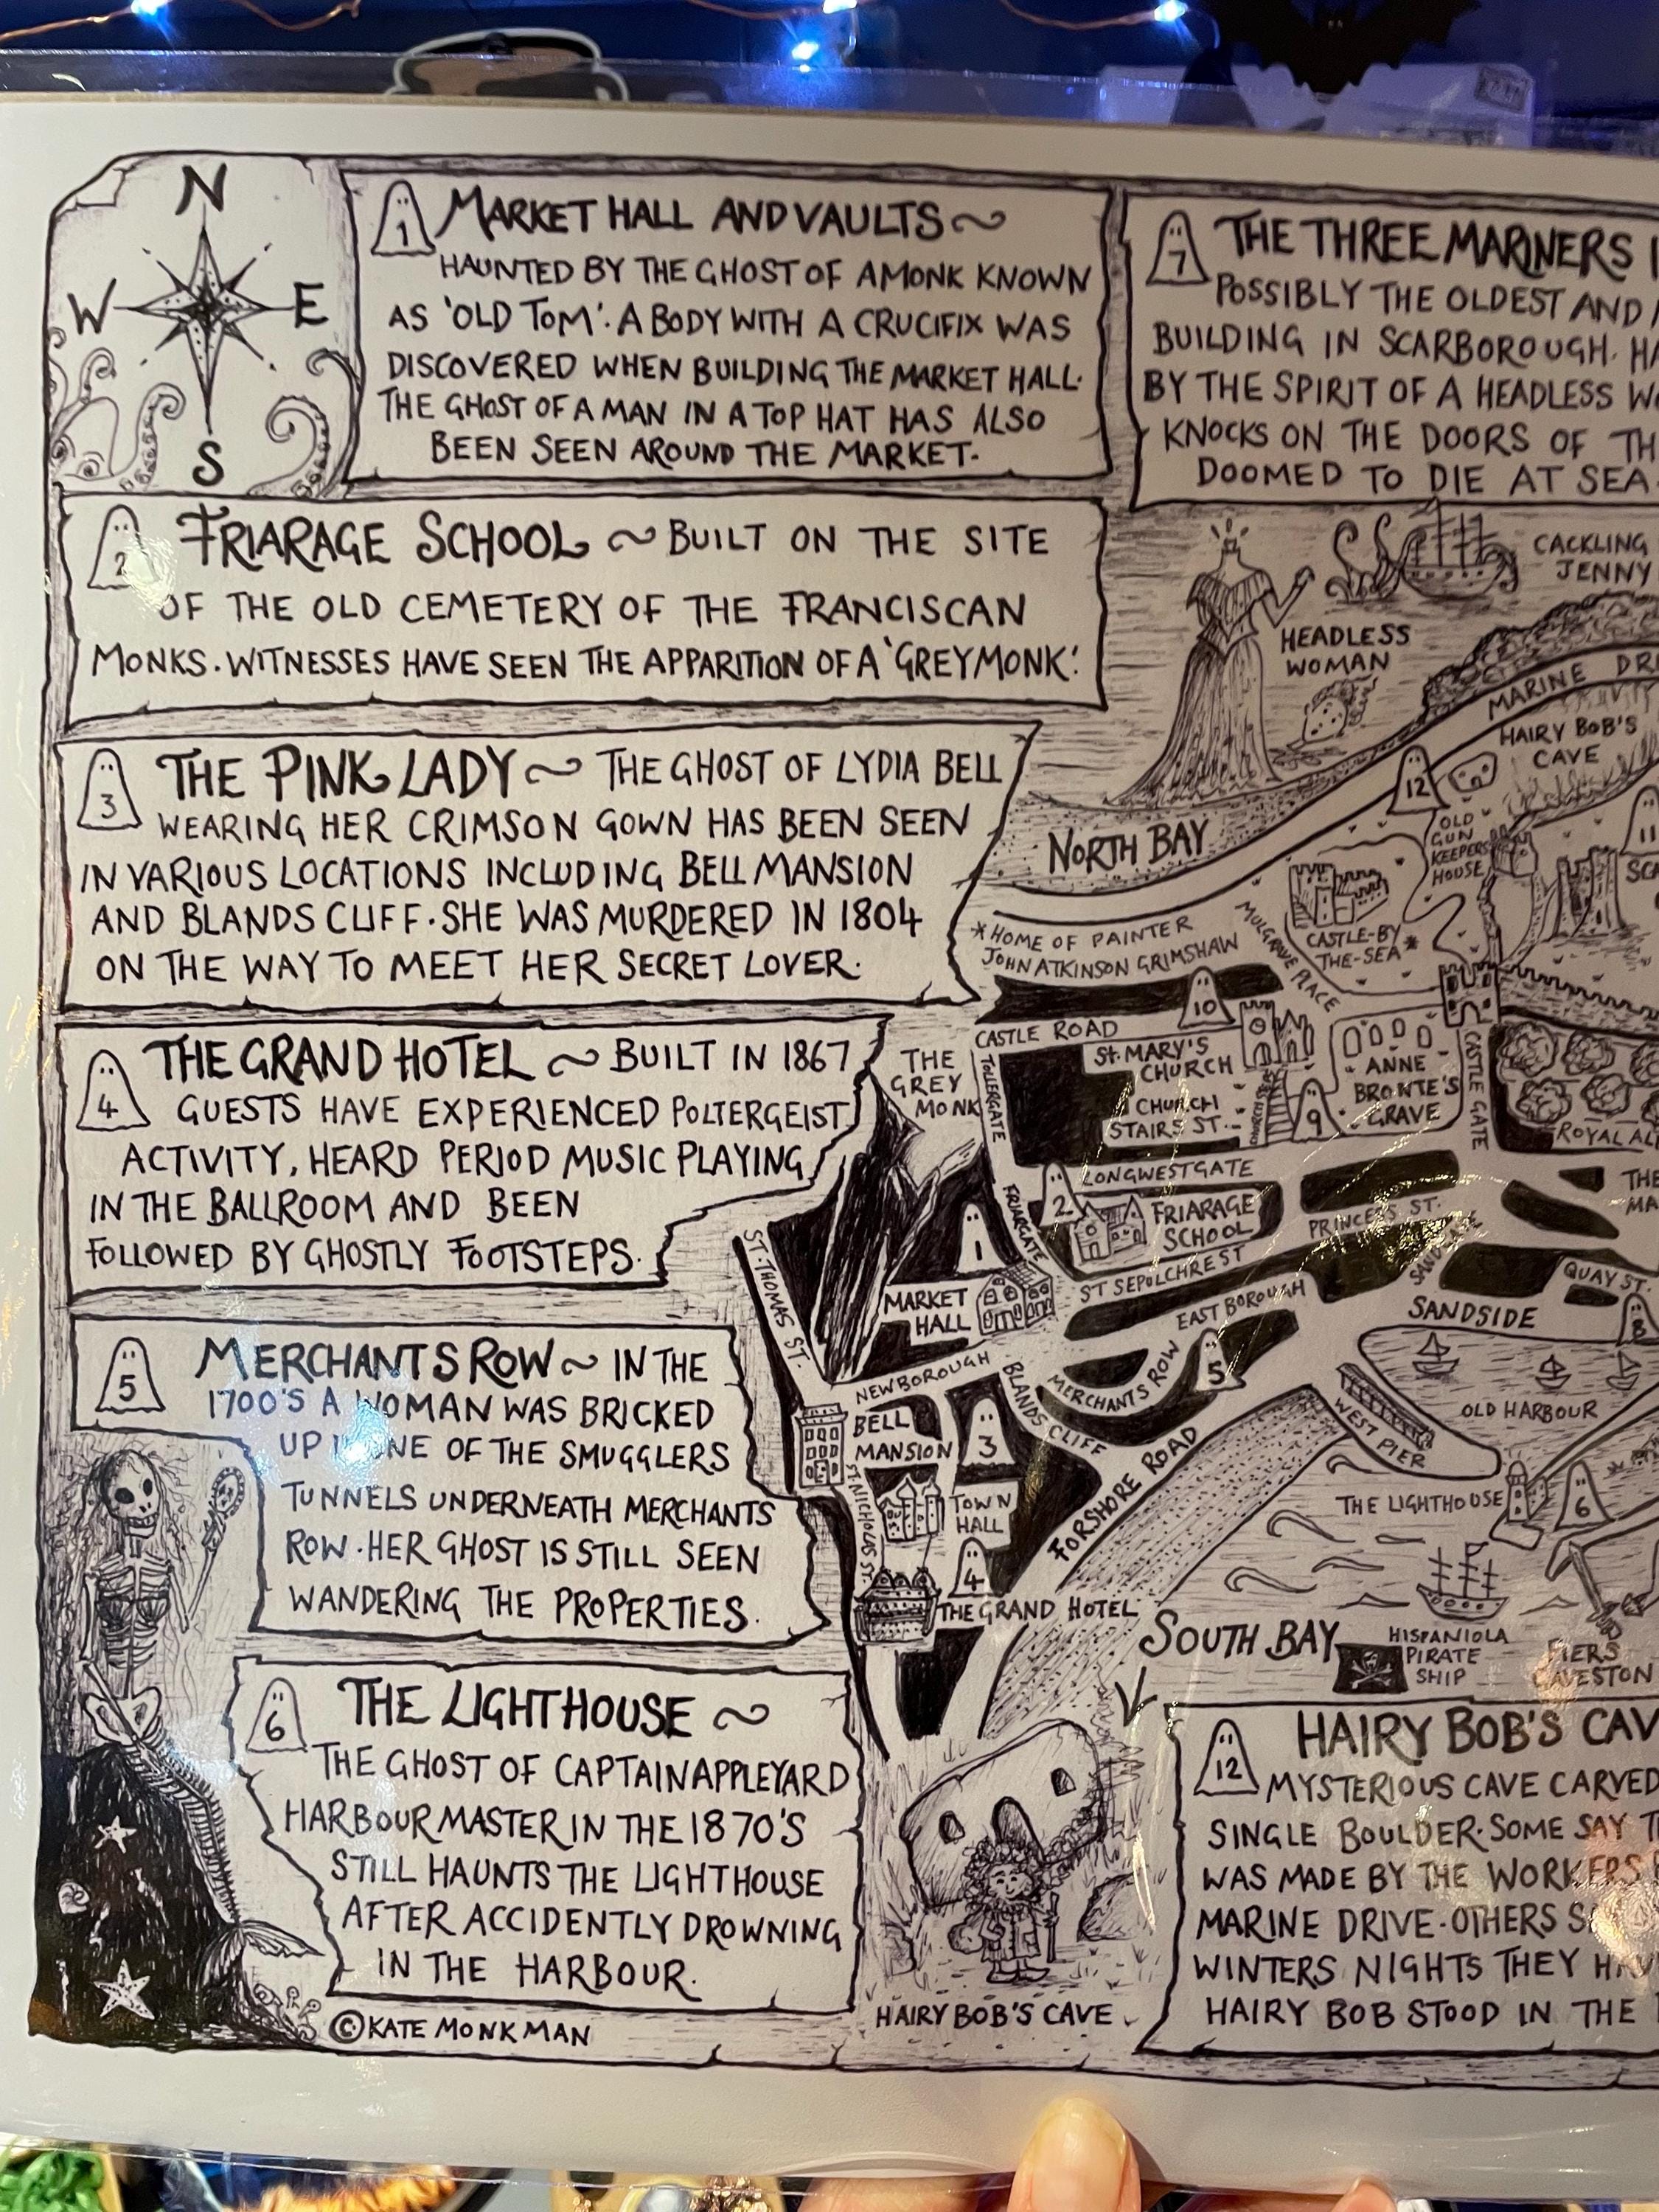 N
W
E
S
1
MARKET HALL AND VAULTS ~
HAUNTED BY THE GHOST OF A MONK KNOWN
AS 'OLD TOM'. A BODY WITH A CRUCIFIX WAS
DISCOVERED WHEN BUILDING THE MARKET HALL.
THE GHOST OF A MAN IN A TOP HAT HAS ALSO
BEEN SEEN AROUND THE MARKET.
2
FRIARAGE SCHOOL ~ BUILT ON THE SITE
OF THE OLD CEMETERY OF THE FRANCISCAN
MONKS. WITNESSES HAVE SEEN THE APPARITION OF A 'GREY MONK'.
3
THE PINK LADY ~ THE GHOST OF LYDIA BELL
WEARING HER CRIMSON GOWN HAS BEEN SEEN
IN VARIOUS LOCATIONS INCLUDING BELL MANSION
AND BLANDS CLIFF. SHE WAS MURDERED IN 1804
ON THE WAY TO MEET HER SECRET LOVER.
4
THE GRAND HOTEL ~ BUILT IN 1867
GUESTS HAVE EXPERIENCED POLTERGEIST
ACTIVITY, HEARD PERIOD MUSIC PLAYING
IN THE BALLROOM AND BEEN
FOLLOWED BY GHOSTLY FOOTSTEPS.
5
MERCHANTS ROW ~ IN THE
1700'S A WOMAN WAS BRICKED
UP OF THE SMUGGLERS
TUNNELS UNDERNEATH MERCHANTS
ROW. HER GHOST IS STILL SEEN
WANDERING THE PROPERTIES.
6
THE LIGHTHOUSE ~
THE GHOST OF CAPTAIN APPLEYARD
HARBOUR MASTER IN THE 1870'S
STILL HAUNTS THE LIGHTHOUSE
AFTER ACCIDENTLY DROWNING
IN THE HARBOUR.
© KATE MONKMAN
7
THE THREE MARINERS
POSSIBLY THE OLDEST AND
BUILDING IN SCARBOROUGH.
BY THE SPIRIT OF A HEADLESS
KNOCKS ON THE DOORS OF
DOOMED TO DIE AT SEA
CACKLING
JENNY
HEADLESS
WOMAN
MARINE
HAIRY BOB'S
CAVE
12
NORTH BAY
OLD
GUN
KEEPERS
HOUSE
11
* HOME OF PAINTER
JOHN ATKINSON GRIMSHAW
MULGRAVE PLACE
CASTLE-BY
THE-SEA *
10
CASTLE ROAD
THE
GREY
MONK
TOLLERGATE
ST. MARY'S
CHURCH
CHURCH
STAIRS ST.
9
ANNE
BRONTE'S
GRAVE
CASTLE GATE
ROYAL
LONGWESTGATE
2
FRIARAGE
SCHOOL
FRIARGATE
PRINCESS ST.
ST SEPULCHRE ST
1
MARKET
HALL
ST. THOMAS ST.
EAST BOROUGH
QUAY ST.
SANDSIDE
8
NEWBOROUGH
BLANDS CLIFF
MERCHANTS ROW
5
OLD HARBOUR
WEST PIER
BELL
MANSION
3
ST. NICHOLAS ST.
TOWN
HALL
FORSHORE ROAD
THE LIGHTHOUSE
6
4
THE GRAND HOTEL
SOUTH BAY
HISPANIOLA
PIRATE
SHIP
PIERS
CAVESTON
HAIRY BOB'S CAVE
12
HAIRY BOB'S
MYSTERIOUS CAVE CARVED
SINGLE BOULDER. SOME SAY
WAS MADE BY THE WORKERS
MARINE DRIVE. OTHERS
WINTERS NIGHTS THEY
HAIRY BOB STOOD IN THE